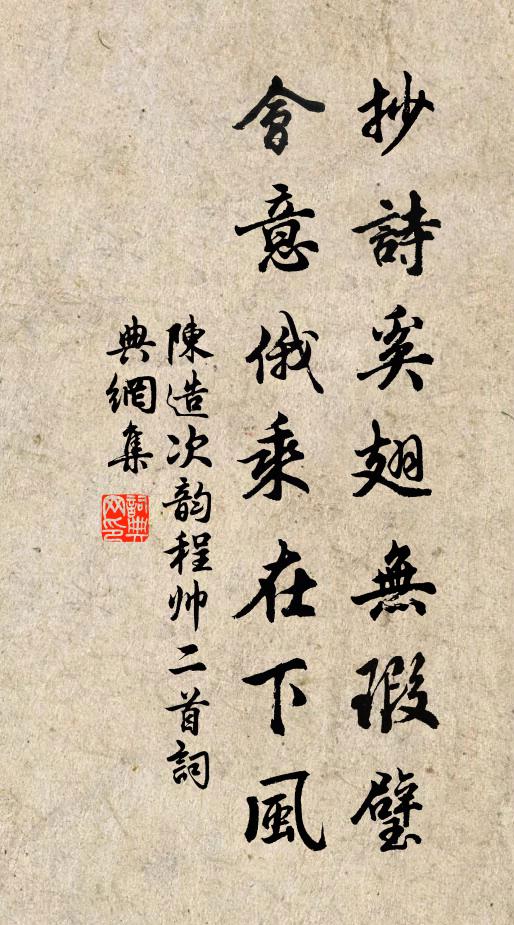 抄詩奚翅無瑕璧
會意俄乘在下風
陳造次韵程帅二首詞
典網集
詞典
网印